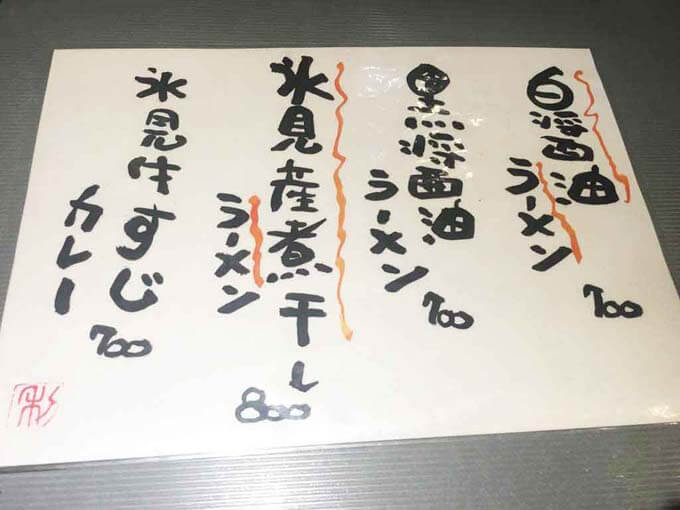 白醤油
ラーメン
700
黒醤油
ラーメン
700
氷見産煮干し
ラーメン
800
氷見牛すじ
カレー
700
彩